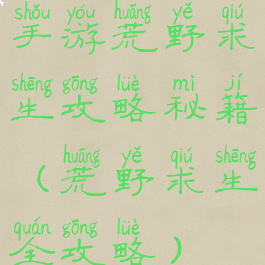 shǒu yóu huāng yě qiú
手游荒野求
shēng gōng lüè mì jí
生攻略秘籍
huāng yě qiú shēng
（荒野求生
quán gōng lüè
全攻略）